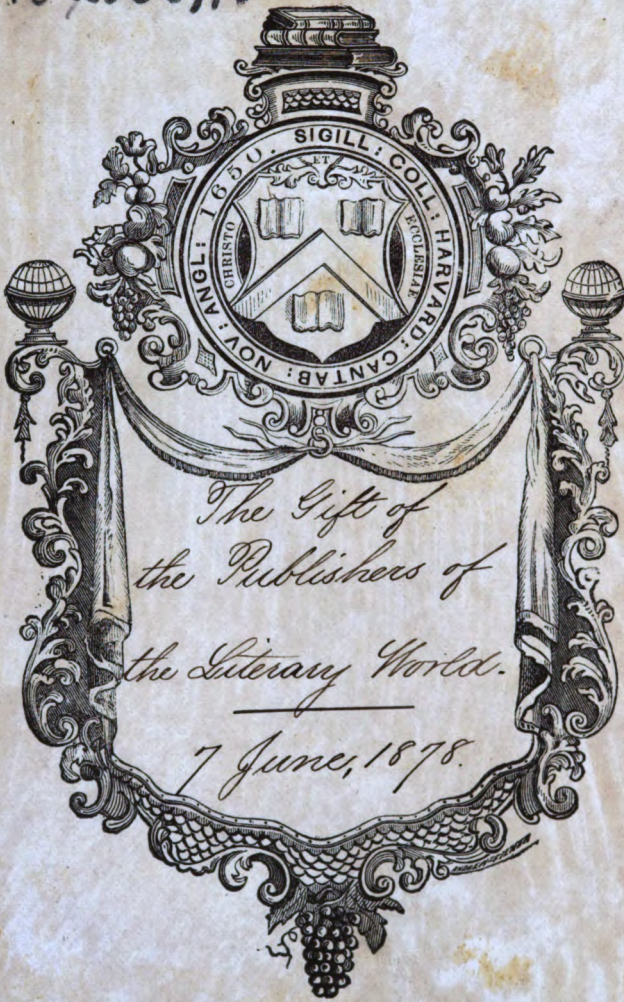 SIGILL: COLL: HARVARD: CANTAB: NOV: ANGL: 1650.
CHRISTO ET ECCLESIAE
The Gift of
the Publishers of
the Literary World.
7 June, 1878.